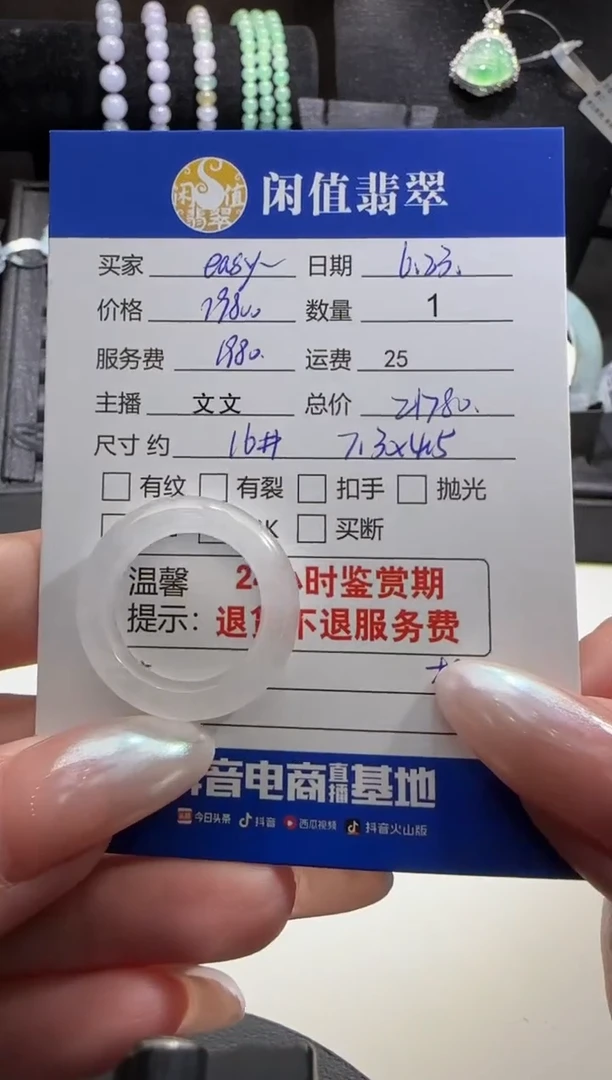 闲值翡翠
闲值翡翠
买家 easy~ 日期 6.23.
价格 19800 数量 1
服务费 1980. 运费 25
主播 文文 总价 21780.
尺寸 约 16# 7.3x4.5
有纹 有裂 扣手 抛光
买断
温馨 24小时鉴赏期
提示: 退货不退服务费
音电商直播基地
今日头条 抖音 西瓜视频 抖音火山版